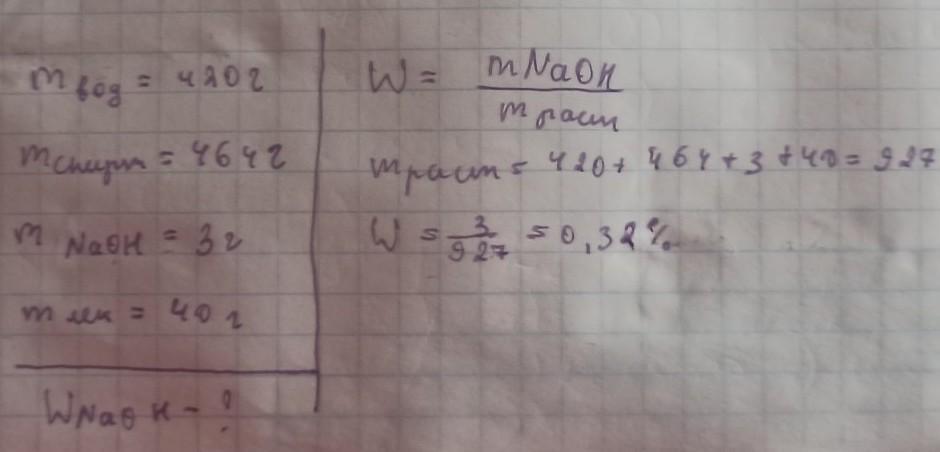 m вод = 420г
m спирт = 464г
m NaOH = 3г
m лек = 40г
W NaOH - ?
W = mNaOH / m раст
m раст = 420 + 464 + 3 + 40 = 927
W = 3 / 927 = 0,32%